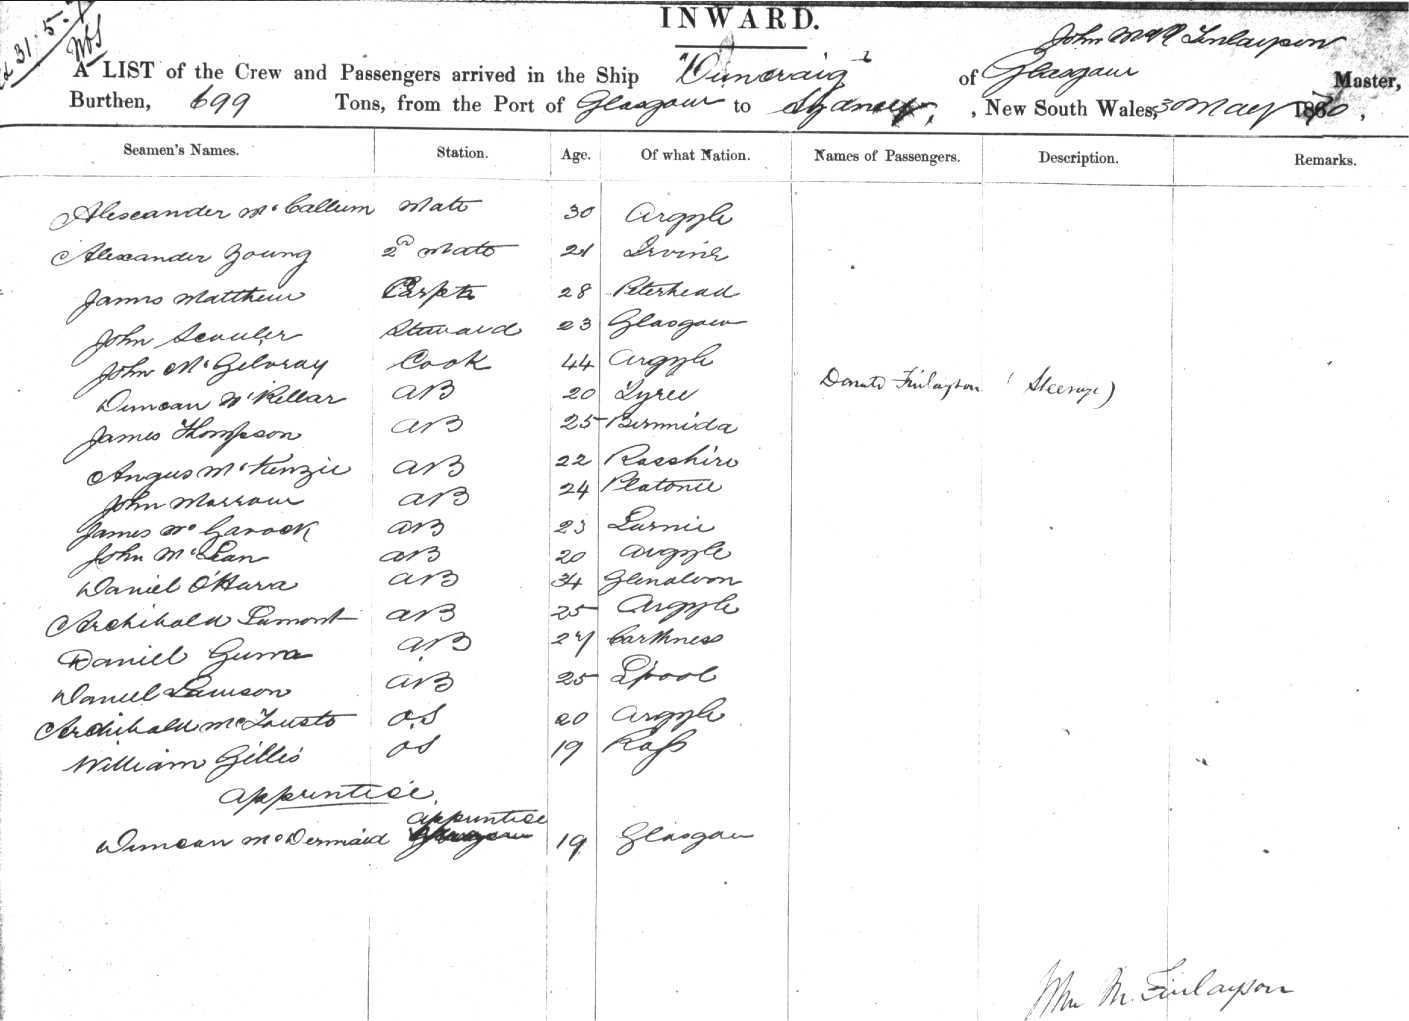 31.5.7
INWARD.
John McK Finlayson
A LIST of the Crew and Passengers arrived in the Ship "Duncraig" of Glasgow Master,
Burthen, 699 Tons, from the Port of Glasgow to Sydney, , New South Wales, 30 May 1870,
Seamen's Names. Station. Age. Of what Nation. Names of Passengers. Description. Remarks.
Alexander McCallum Mate 30 Argyle
Alexander Young 2d Mate 21 Irvine
James Matthew Carptr 28 Peterhead
John Scouler Steward 23 Glasgow
John McGilvray Cook 44 Argyle
Duncan McKellar AB 20 Tyree Finlayson (Steerage)
James Thompson AB 25 Bermuda
Angus McKenzie AB 22 Rosshire
John Morrow AB 24
James AB 23 Larne
John McLean AB 20 Argyle
Daniel O'Hara AB 34
Archibald Lamont AB 25 Argyle
Daniel Gunn AB 27 Caithness
Daniel Lawson AB 25 L'pool
Archibald OS 20 Argyle
William Gillis OS 19 Ross
Apprentice
Duncan McDermaid apprentice 19 Glasgow
Jhn M. Finlayson